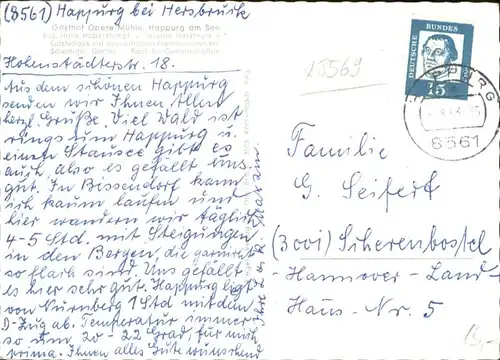 (8561) Happurg bei Hersbruck
Gasthof Obere Mühle, Happurg am See
Hohenstädterstr. 18.
Aus dem schönen Happurg
senden wir Ihnen Allen
herzl. Grüße. Viel Wald ist
rings um Happurg u.
einen Stausee gibt es
auch, also es gefällt uns
gut. In Bissendorf kann
ich kaum laufen und
hier wandern wir täglich
4-5 Std. mit Steigungen
in den Bergen, die garnicht
so flach sind. Uns gefällt
es hier sehr gut. Happurg liegt
von Nürnberg 1 Std mit dem
D-Zug ab. Temperatur immer
so um 20-22 Grad, für mich
prima. Ihnen alles Gute wünschend
DEUTSCHE BUNDES
15
HAPPURG
8561
x8569
Familie
G. Seifert
(3001) Sikerenbostel
Hannover-Land-
Haus-Nr. 5